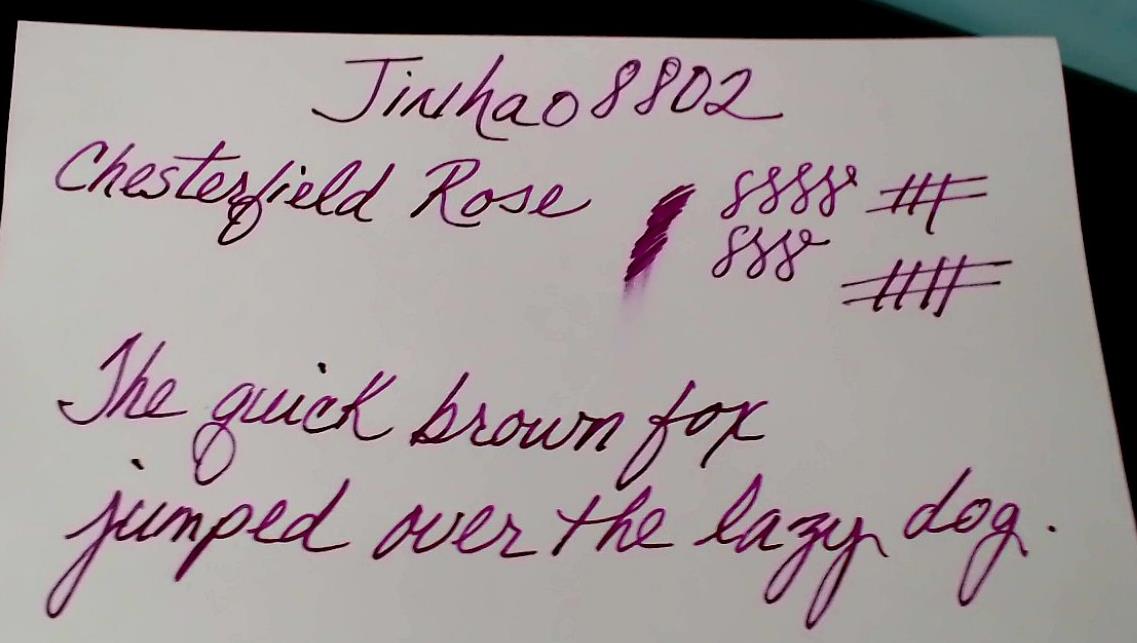 Jinhao 8802
Chesterfield Rose
The quick brown fox
jumped over the lazy dog.